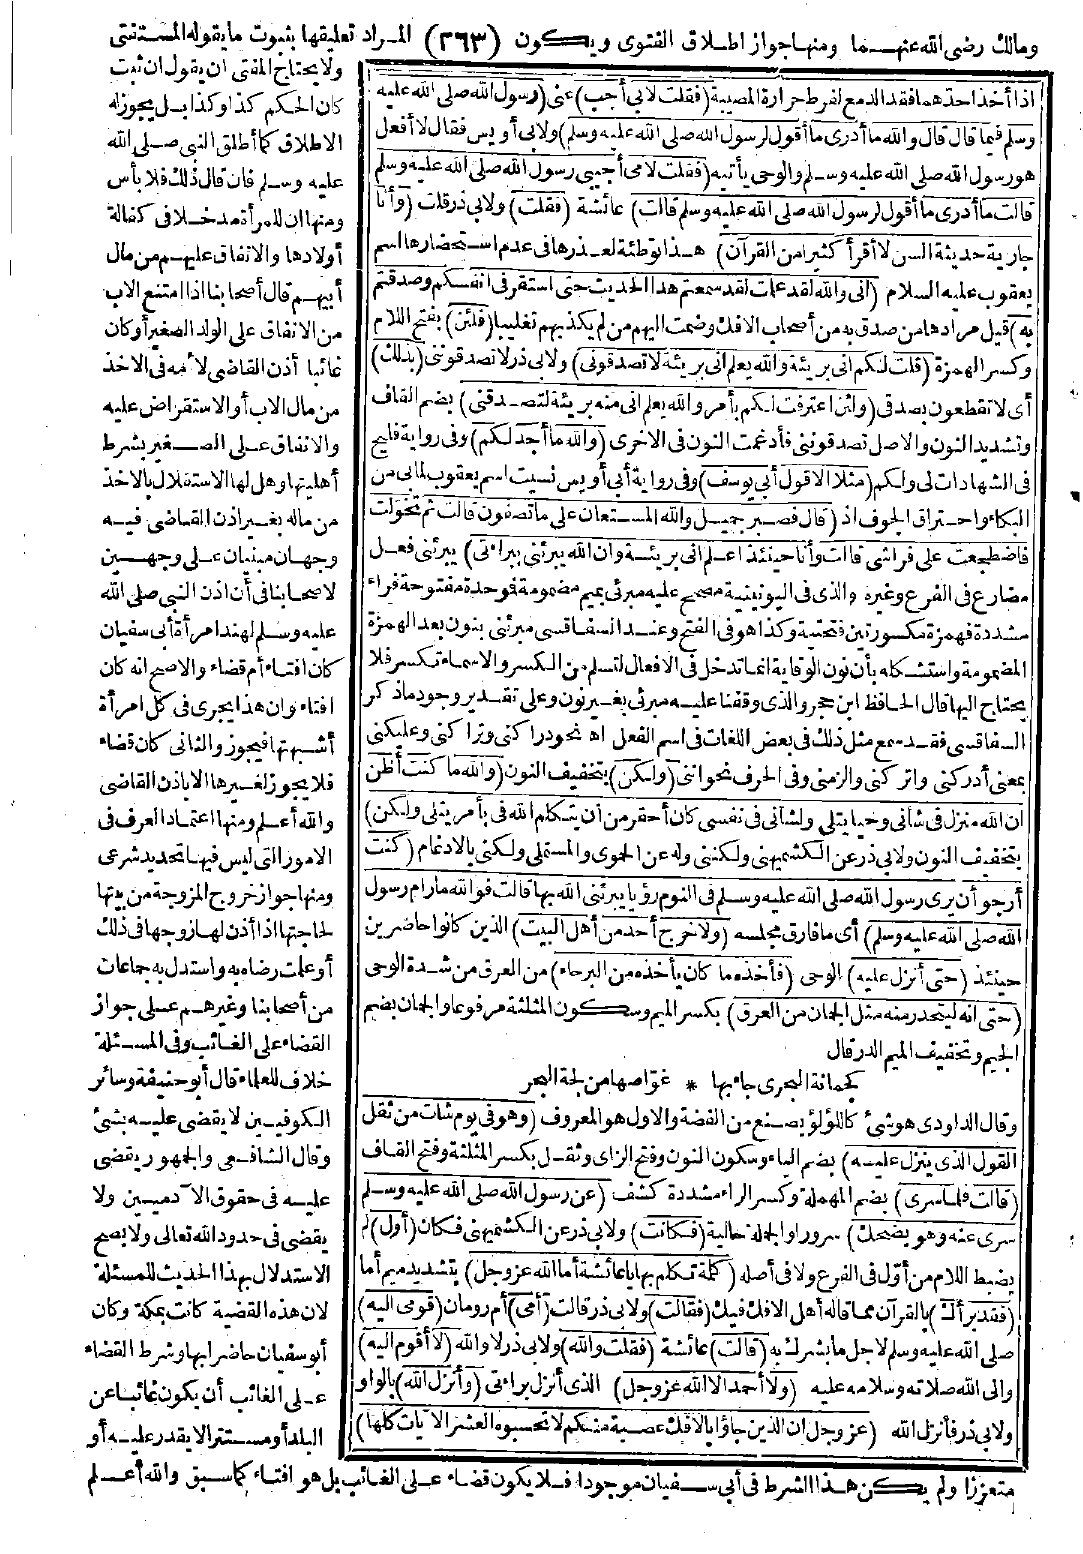 ومالك رضى الله عنهما ومنها جواز اطلاق الفتوى ويكون (٣٦٣) المراد تعليقها بثبوت ما يقوله المستفتى
ولا يحتاج المفتى ان يقول ان ثبت
كان الحكم كذا وكذا بل يجوز له
الاطلاق كما أطلق النبى صلى الله
عليه وسلم فان قال ذلك فلا بأس
ومنها ان للمرأة مدخلا فى كفالة
أولادها والانفاق عليهم من مال
أبيهم قال أصحابنا اذا امتنع الاب
من الانفاق على الولد الصغير أو كان
غائبا أذن القاضى لامه فى الاخذ
من مال الاب أو الاستقراض عليه
والانفاق على الصغير بشرط
أهليتها وهل لها الاستقلال بالاخذ
من ماله بغير اذن القاضى فيه
وجهان مبنيان على وجهين
لاصحابنا فى أن اذن النبى صلى الله
عليه وسلم لهند امرأة أبى سفيان
كان افتاء أم قضاء والاصح انه كان
افتاء وان هذا يجرى فى كل امرأة
أشبهتها فيجوز والثانى كان قضاء
فلا يجوز لغيرها الا باذن القاضى
والله أعلم ومنها اعتماد العرف فى
الامور التى ليس فيها تحديد شرعى
ومنها جواز خروج المزوجة من بيتها
لحاجتها اذا أذن لها زوجها فى ذلك
أو علمت رضاه به واستدل به جماعات
من أصحابنا وغيرهم على جواز
القضاء على الغائب وفى المسئلة
خلاف للعلماء قال أبو حنيفة وسائر
الكوفيين لا يقضى عليه بشئ
وقال الشافعى والجمهور يقضى
عليه فى حقوق الآدميين ولا
يقضى فى حدود الله تعالى ولا يصح
الاستدلال بهذا الحديث للمسئلة
لان هذه القضية كانت بمكة وكان
أبو سفيان حاضرا بها وشرط القضاء
على الغائب أن يكون غائبا عن
البلد أو مستترا لا يقدر عليه أو
متعززا ولم يكن هذا الشرط فى أبى سفيان موجودا فلا يكون قضاء على الغائب بل هو افتاء كما سبق والله أعلم
اذا أخذا حدهما فقد الدمع لفرط حرارة المصيبة (فقلت لابى أجب) عنى (رسول الله صلى الله عليه
وسلم فيما قال قال والله ما أدرى ما أقول لرسول الله صلى الله عليه وسلم) ولابى أويس فقال لا أفعل
هو رسول الله صلى الله عليه وسلم والوحى يأتيه (فقلت لامى أجيبى رسول الله صلى الله عليه وسلم
قالت ما أدرى ما أقول لرسول الله صلى الله عليه وسلم قالت) عائشة (فقلت) ولابى ذر قلت (وأنا
جارية حديثة السن لا أقرأ كثيرا من القرآن) هذا توطئة لعذرها فى عدم استحضارها اسم
يعقوب عليه السلام (انى والله لقد علمت لقد سمعتم هذا الحديث حتى استقر فى أنفسكم وصدقتم
به) قيل مرادها من صدق به من أصحاب الافك وضمت اليهم من لم يكذبهم تغليبا (فلئن) بفتح اللام
وكسر الهمزة (قلت لكم انى بريئة والله يعلم انى بريئة لا تصدقونى) ولابى ذر لا تصدقوننى (بذلك)
أى لا تقطعون بصدقى (ولئن اعترفت لكم بأمر والله يعلم انى منه بريئة لتصدقنى) بضم القاف
وتشديد النون والاصل تصدقوننى فأدغمت النون فى الاخرى (والله ما أجد لكم) وفى رواية فليح
فى الشهادات لى ولكم (مثلا الا قول أبى يوسف) وفى رواية أبى أويس نسيت اسم يعقوب لما بى من
البكاء واحتراق الجوف اذ (قال فصبر جميل والله المستعان على ما تصفون قالت ثم تحوّلت
فاضطجعت على فراشى قالت وأنا حينئذ اعلم انى بريئة وان الله يبرئنى ببراءتى) يبرئنى فعل
مضارع فى الفرع وغيره والذى فى اليونينية مصحح عليه مبرئى بميم مضمومة فموحدة مفتوحة فراء
مشددة فهمزة مكسورتين فتحتية وكذا هو فى الفتح وعند السفاقسى مبرئنى بنون بعد الهمزة
المضمومة واستشكله بأن نون الوقاية انما تدخل فى الافعال لتسلم من الكسر والاسماء تكسر فلا
يحتاج اليها قال الحافظ ابن حجر والذى وقفنا عليه مبرئى بغير نون وعلى تقدير وجود ما ذكر
السفاقسى فقد سمع مثل ذلك فى بعض اللغات فى اسم الفعل اه نحو دراكنى وتراكنى وعليكنى
بمعنى أدركنى واتركنى والزمنى وفى الحرف نحو اننى (ولكن) بتخفيف النون (والله ما كنت أظن
ان الله منزل فى شأنى وحيا يتلى ولشأنى فى نفسى كان أحقر من أن يتكلم الله فى بأمر يتلى ولكن)
بتخفيف النون ولابى ذر عن الكشميهنى ولكننى وله عن الحموى والمستملى ولكنى بالادغام (كنت
أرجو أن يرى رسول الله صلى الله عليه وسلم فى النوم رؤيا يبرئنى الله بها قالت فوالله ما رام رسول
الله صلى الله عليه وسلم) أى ما فارق مجلسه (ولا خرج أحد من أهل البيت) الذين كانوا حاضرين
حينئذ (حتى أنزل عليه) الوحى (فأخذه ما كان يأخذه من البرحاء) من العرق من شدة الوحى
(حتى انه ليتحدر منه مثل الجمان من العرق) بكسر الميم وسكون المثلثة مرفوعا والجمان بضم
الجيم وتخفيف الميم الدر قال
كجمانة البحرى جاء بها * غوّاصها من لجة البحر
وقال الداودى هو شئ كاللؤلؤ يصنع من الفضة والاول هو المعروف (وهو فى يوم شات من ثقل
القول الذى ينزل عليه) بضم الياء وسكون النون وفتح الزاى وثقل بكسر المثلثة وفتح القاف
(قالت فلما سرى) بضم المهملة وكسر الراء مشددة كشف (عن رسول الله صلى الله عليه وسلم
سرى عنه وهو يضحك) سرورا والجملة حالية (فكانت) ولابى ذر عن الكشميهنى فكان (أول) لم
يضبط اللام من أوّل فى الفرع ولا فى أصله (كلمة تكلم بها يا عائشة أما الله عز وجل) بتشديد ميم أما
(فقد برأك) بالقرآن مما قاله أهل الافك فيك (فقالت) ولابى ذر قالت (أمى) أم رومان (قومى اليه)
صلى الله عليه وسلم لاجل ما بشرك به (قالت) عائشة (فقلت والله) ولابى ذر لا والله (لا أقوم اليه)
والى الله صلاته وسلامه عليه (ولا أحمد الا الله عز وجل) الذى أنزل براءتى (وأنزل الله) بالواو
ولابى ذر فأنزل الله (عز وجل ان الذين جاؤا بالافك عصبة منكم لا تحسبوه العشر الآيات كلها)